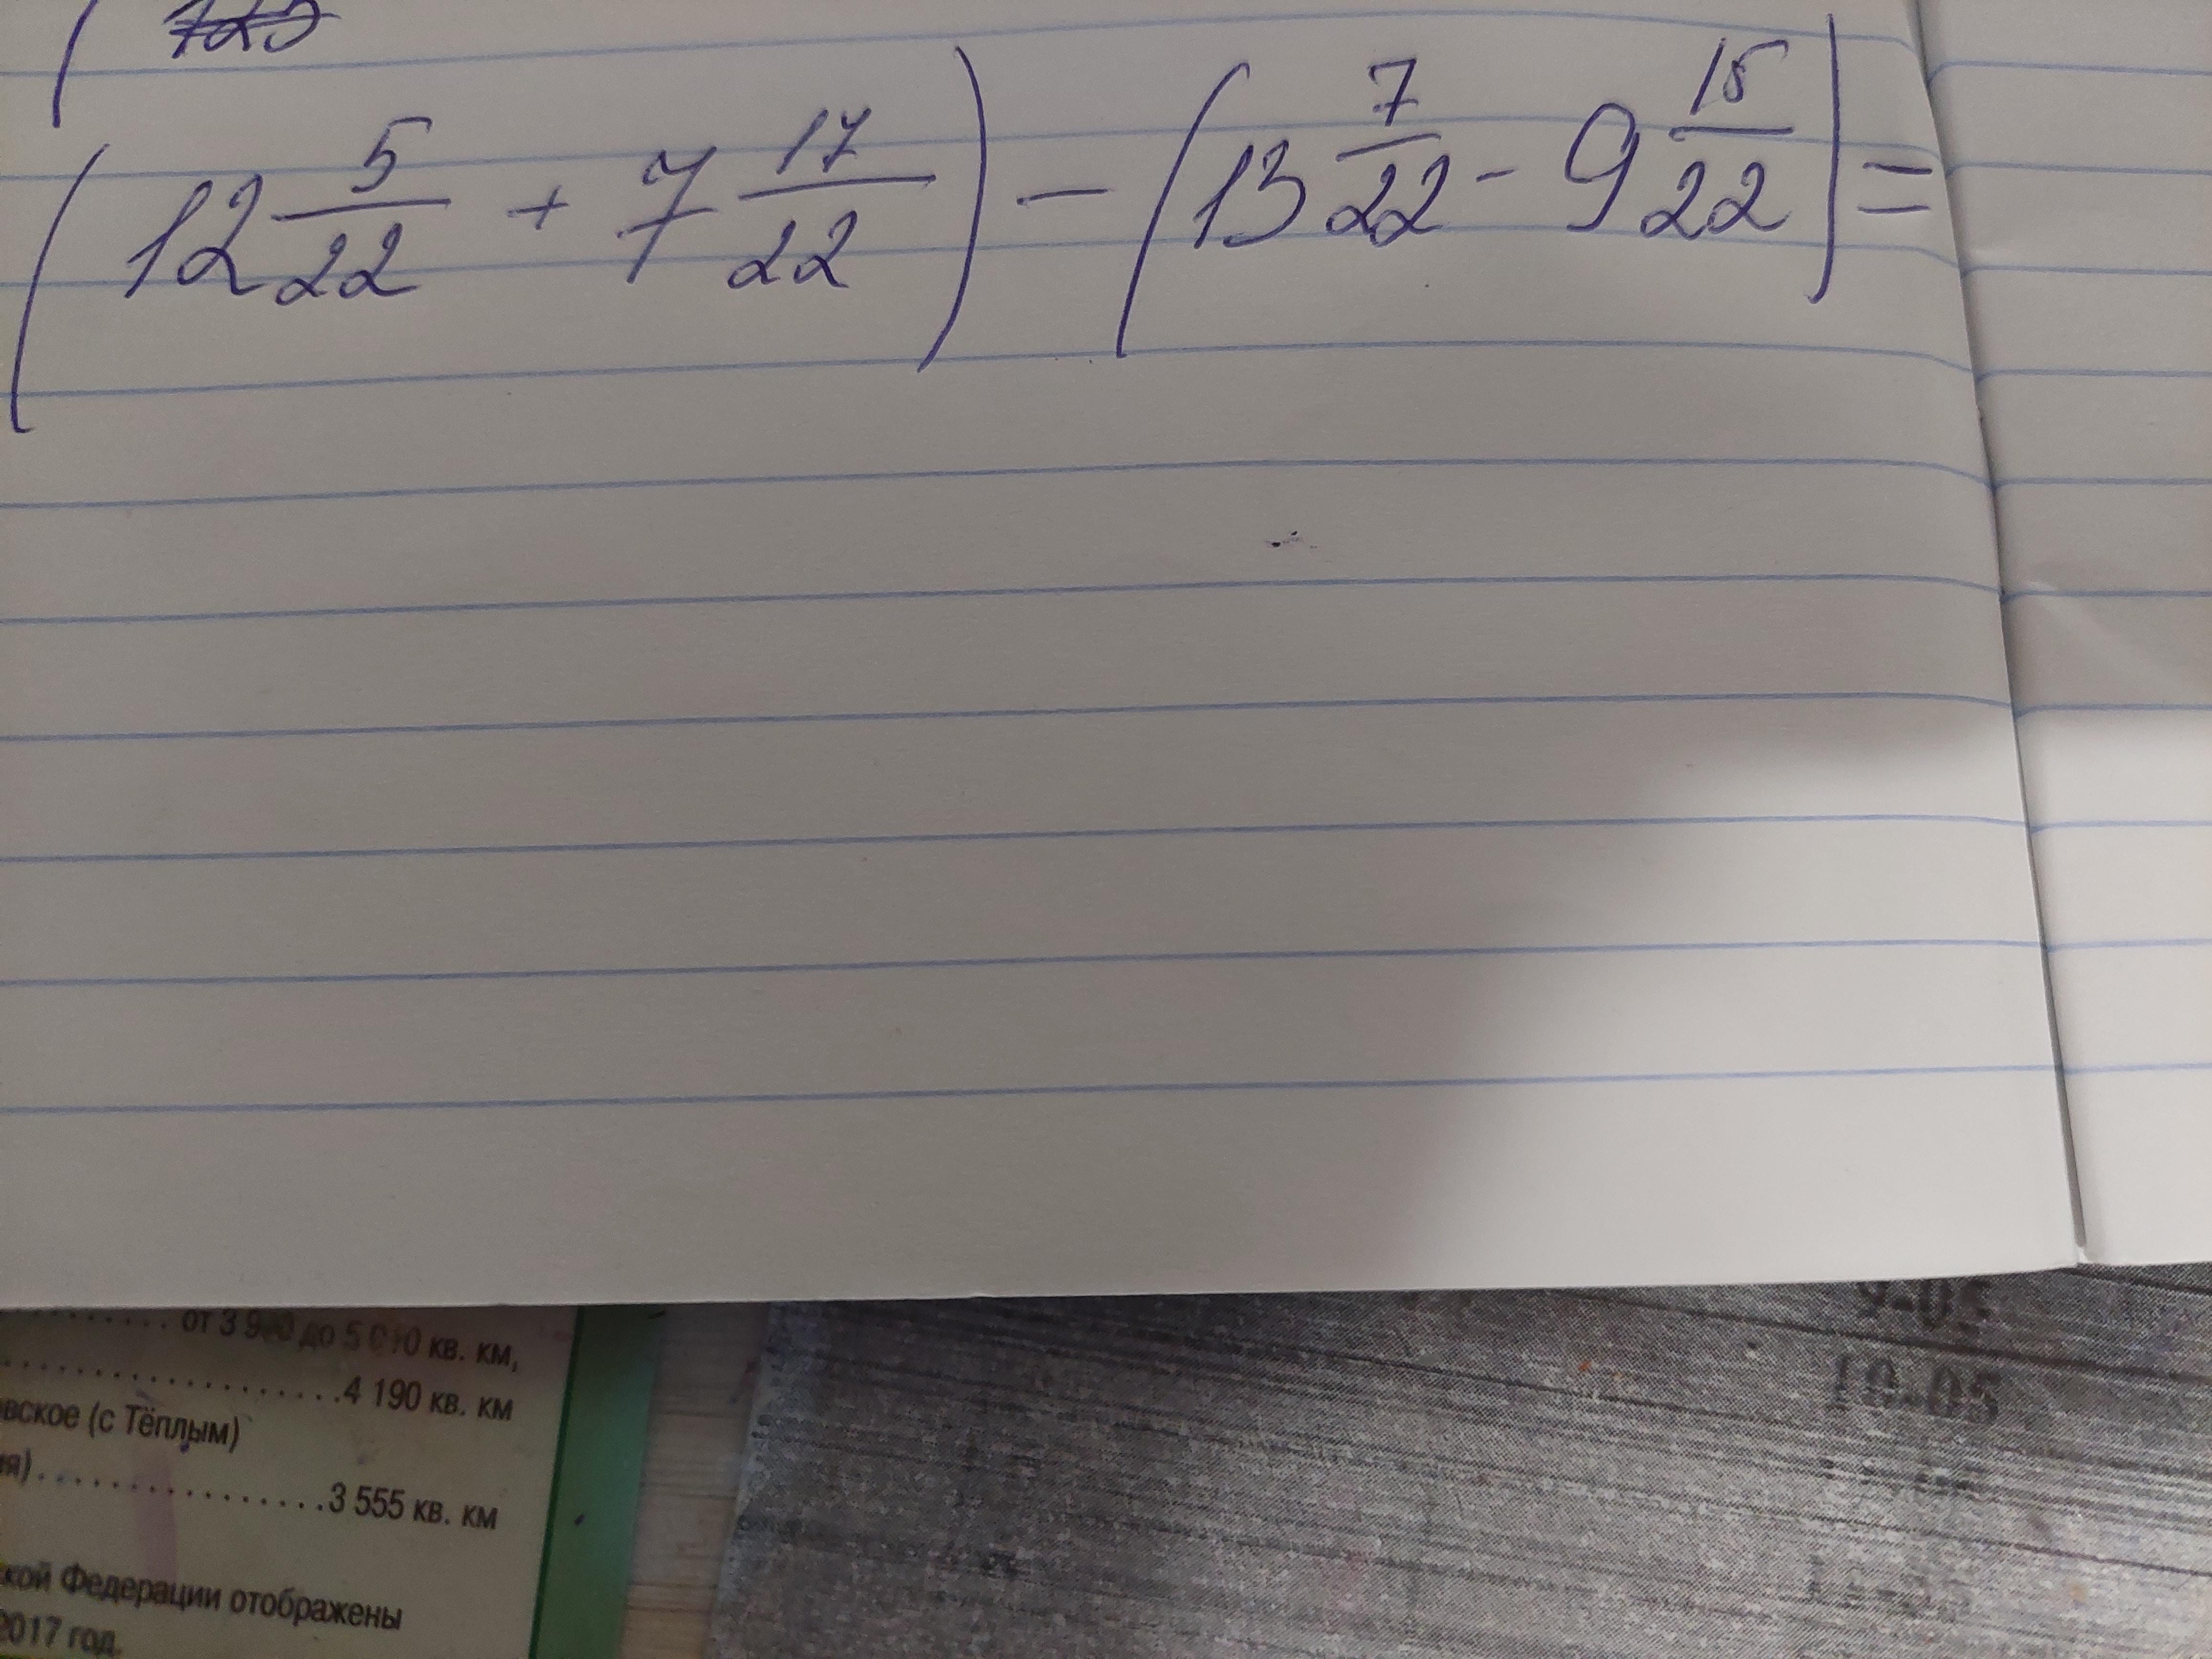 (12 5/22 + 7 17/22) - (13 7/22 - 9 15/22) =
9-05
10-05
от 3 900 до 5 010 кв. км,
4 190 кв. км
вское (с Тёплым)
ия) 3 555 кв. км
кой Федерации отображены
2017 год.